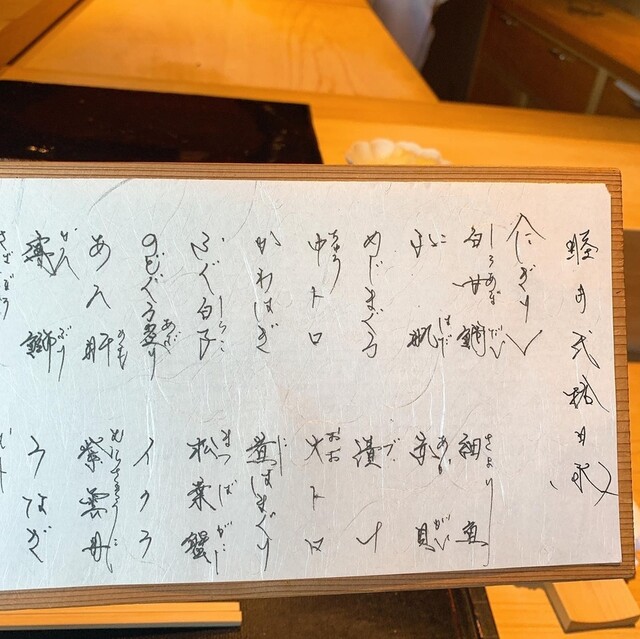 〈にぎり〉
しろあまだい さより
白甘鯛 細魚
こ はだ あか がい
小肌 赤貝
づ
めじまぐろ 漬け
ちゅう おお
中トロ 大トロ
に
かわはぎ 煮はまぐり
しらこ まつばがに
ふぐ白子 松葉蟹
あぶ
のどぐろ炙り イクラ
きも むらさきうに
あん肝 紫雲丹
かん ぶり
寒鰤 うなぎ